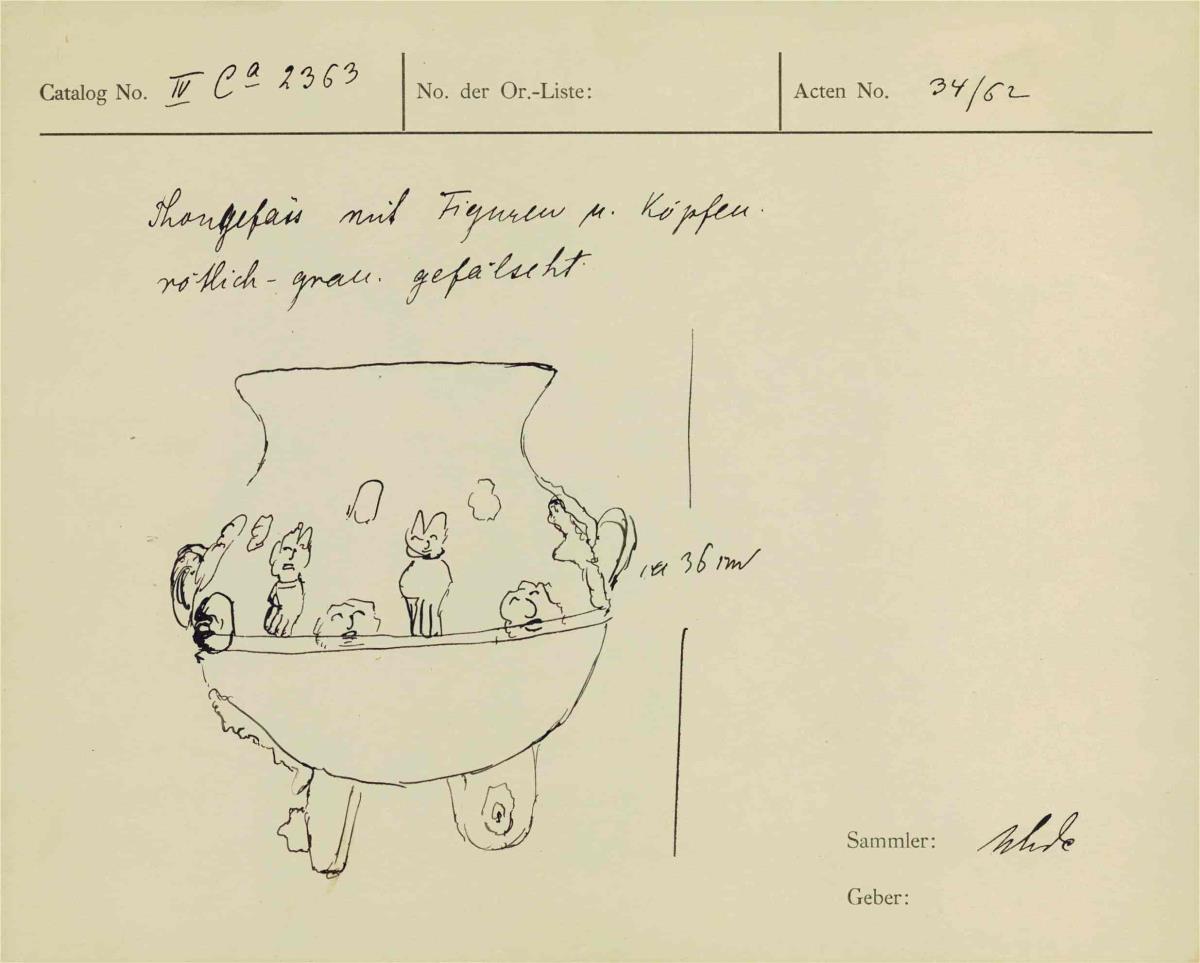 Catalog No. IV Ca 2363
No. der Or.-Liste:
Acten No. 34/62
Thongefäss mit Figuren u. Köpfen.
rötlich-grau. gefälscht.
ca 36 cm
Sammler: Uhde
Geber: